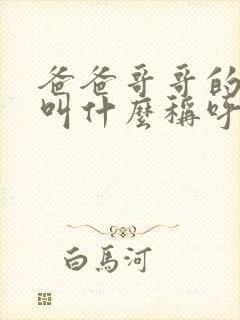 爸爸哥哥的
叫什麼稱呼
白馬河